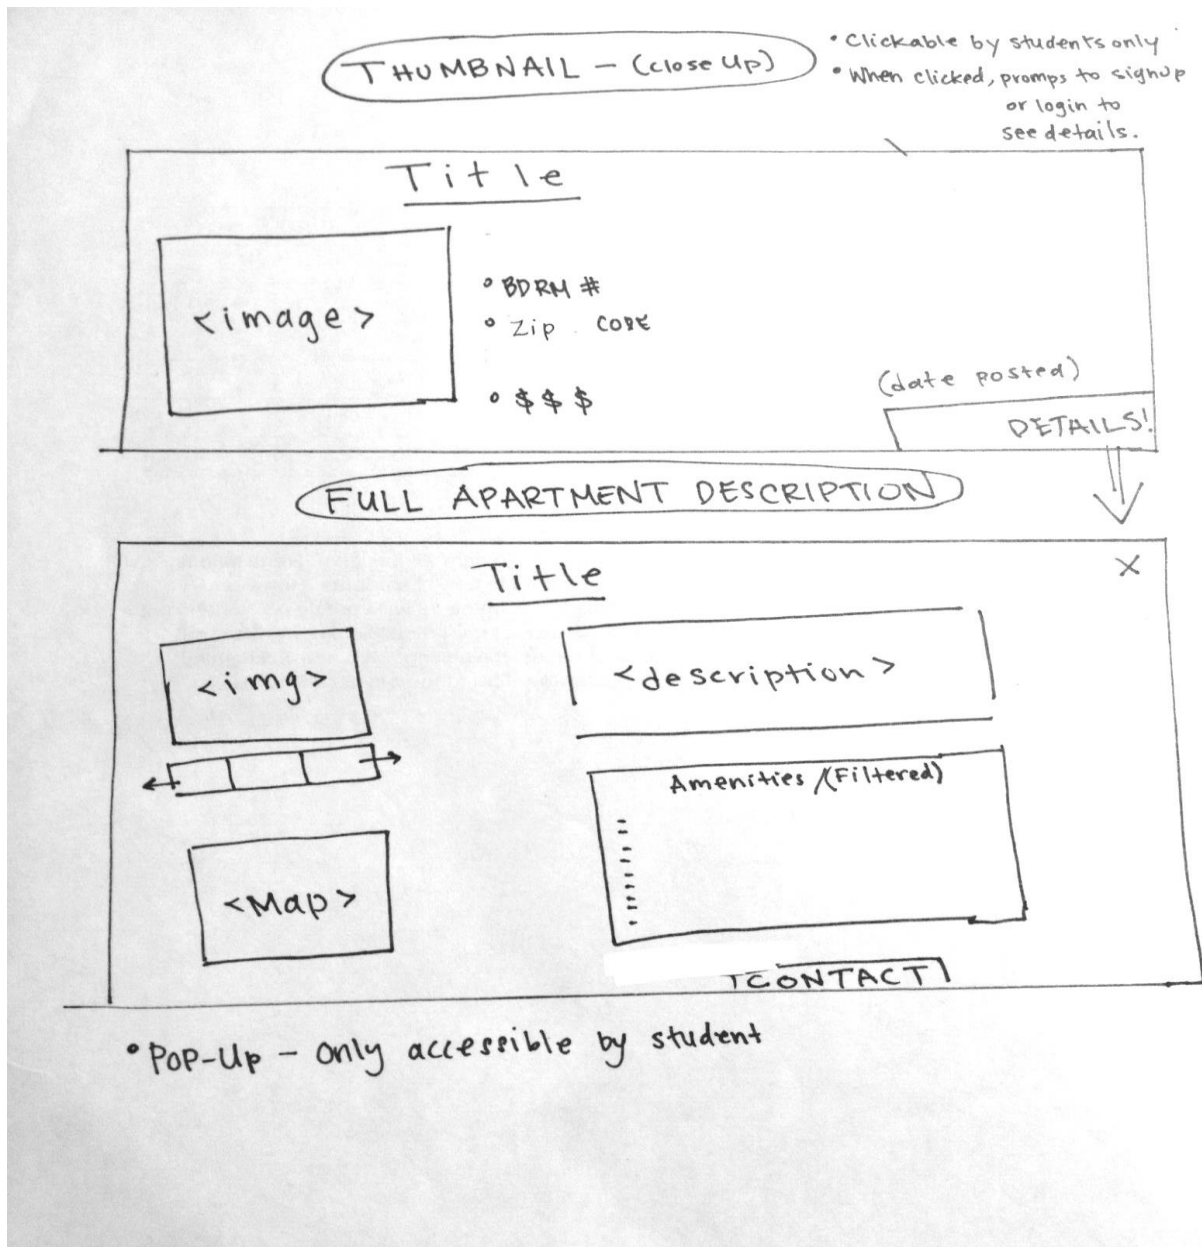 THUMBNAIL – (close up)
• Clickable by students only
• When clicked, promps to signup
or login to
see details.
Title
<image>
• BDRM #
• Zip CODE
• $ $ $
(date posted)
DETAILS!
FULL APARTMENT DESCRIPTION
Title
X
<img>
<description>
Amenities /(Filtered)
<Map>
CONTACT
• Pop-Up – only accessible by student